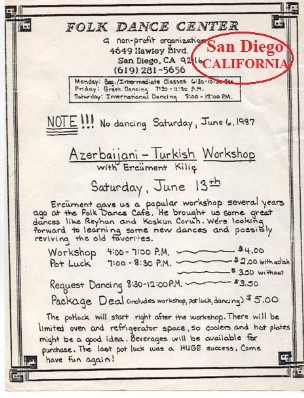 FOLK DANCE CENTER
a non-profit organization
4649 Hawley Blvd.
San Diego, CA 92116
(619) 281-5656
San Diego
CALIFORNIA
Monday: Beg./Intermediate Classes 6:30-10:30 P.M.
Friday: Greek Dancing 7:30-11:30 P.M.
Saturday: International Dancing 8:00-12:00 P.M.
NOTE!!! No dancing Saturday, June 6, 1987
Azerbaijani-Turkish Workshop
with Ercüment Kiliç
Saturday, June 13th
Ercüment gave us a popular workshop several years
ago at the Folk Dance Cafe. He brought us some great
dances like Reyhan and Koskun Coruh. We're looking
forward to learning some new dances and possibly
reviving the old favorites.
Workshop 4:00-7:00 P.M. $4.00
Pot Luck 7:00-8:30 P.M. $2.00 with a dish
$3.50 without
Request Dancing 8:30-12:00 P.M. $3.50
Package Deal (includes workshop, pot luck, dancing) $5.00
The potluck will start right after the workshop. There will be
limited oven and refrigerator space, so coolers and hot plates
might be a good idea. Beverages will be available for
purchase. The last pot luck was a HUGE success. Come
have fun again!